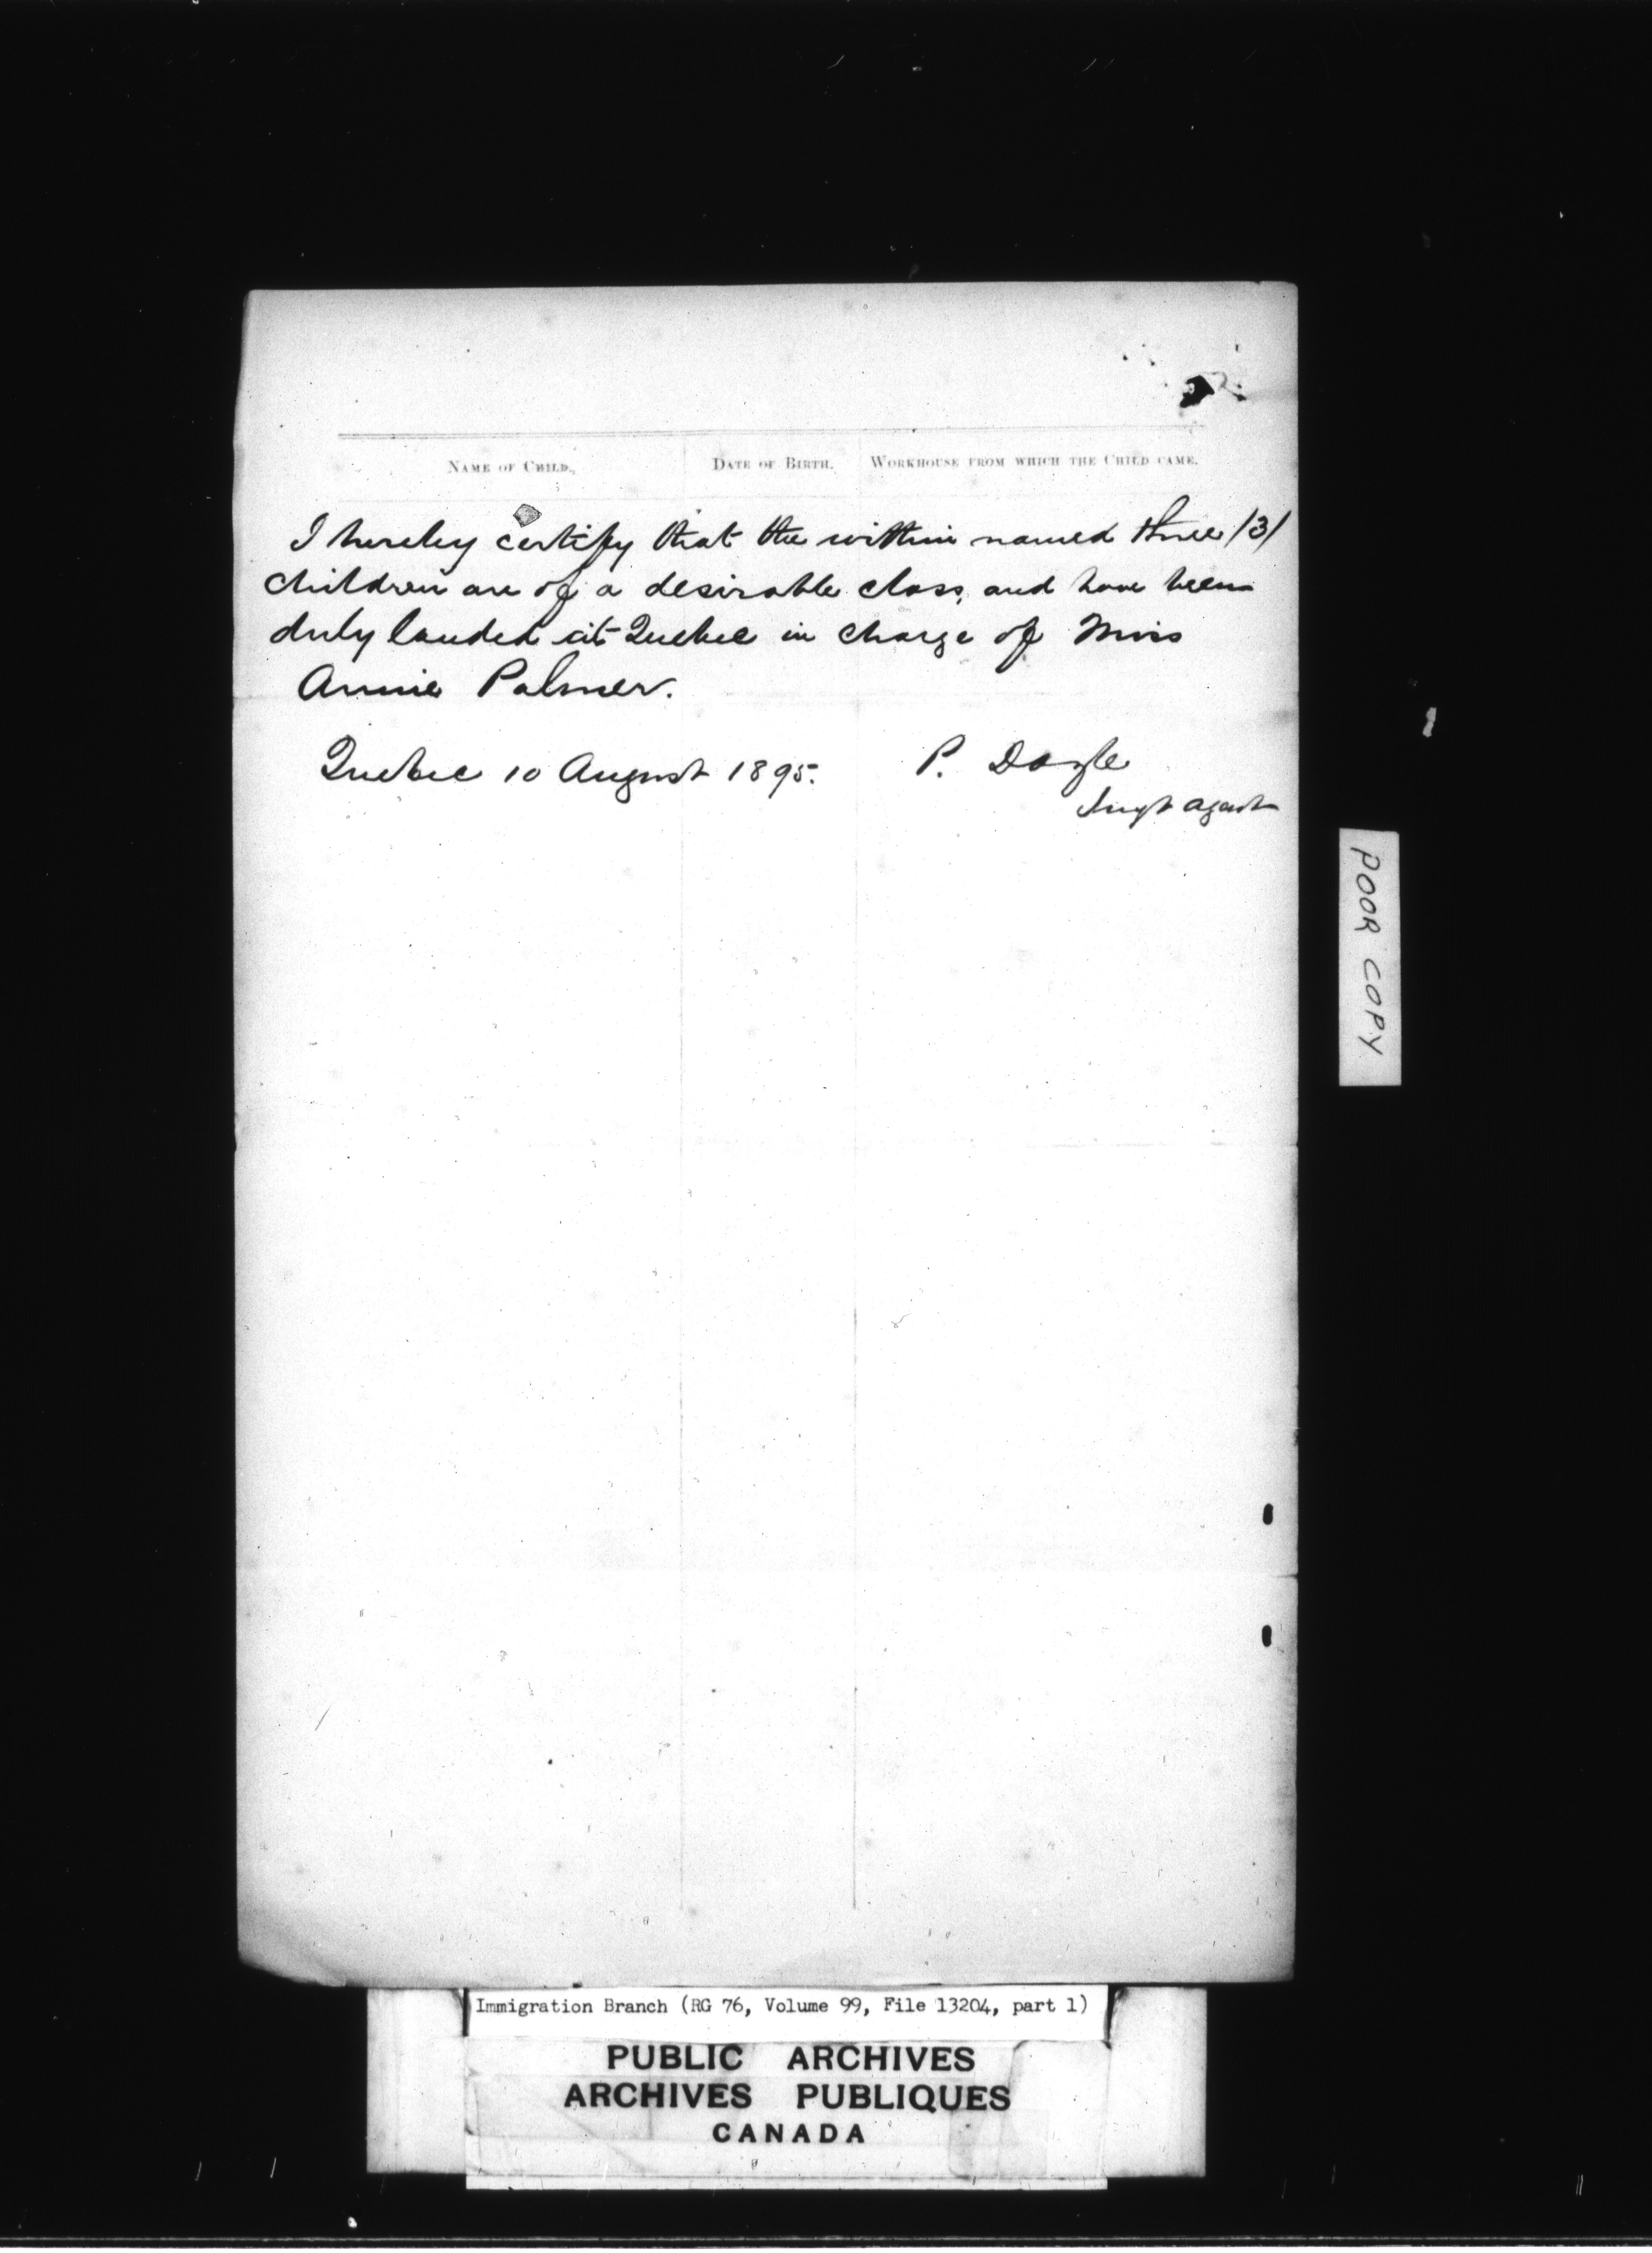 NAME OF CHILD. DATE OF BIRTH. WORKHOUSE FROM WHICH THE CHILD CAME.
I hereby certify that the within named three /3/
children are of a desirable class, and have been
duly landed at Quebec in charge of Miss
Annie Palmer.
Quebec 10 August 1895. P. Doyle
Imgt Agent
POOR COPY
Immigration Branch (RG 76, Volume 99, File 13204, part 1)
PUBLIC ARCHIVES
ARCHIVES PUBLIQUES
CANADA